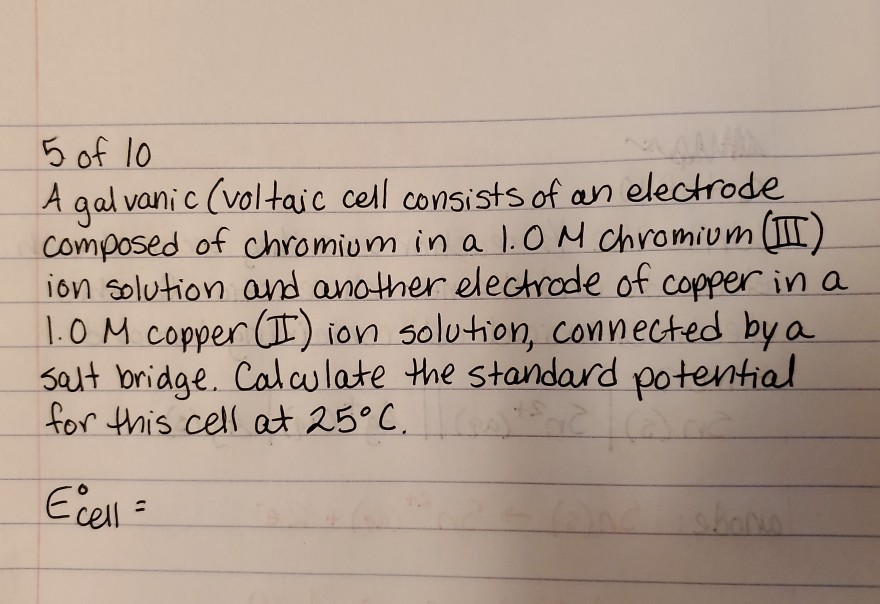 5 of 10
A galvanic (voltaic cell consists of an electrode
composed of chromium in a 1.0 M chromium (III)
ion solution and another electrode of copper in a
1.0 M copper (II) ion solution, connected by a
salt bridge. Calculate the standard potential
for this cell at 25°C.
E°cell =